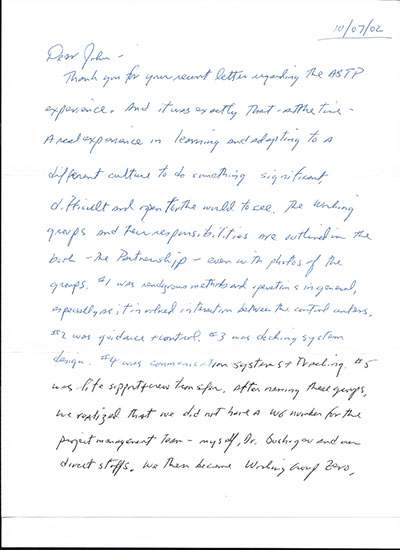 10/07/02
Dear John -
Thank you for your recent letter regarding the ASTP
experience. And it was exactly that at the time -
A real experience in learning and adapting to a
different culture to do something significant,
difficult and open for the world to see. The working
groups and their responsibilities are outlined in the
book - The Partnership - even with photos of the
groups. #1 was rendezvous methods and operations in general,
especially as it involved interaction between the control centers.
#2 was guidance + control. #3 was docking system
design. #4 was communication systems + Tracking. #5
was life support + crew transfer. After naming these groups,
we realized that we did not have a WG number for the
project management team - myself, Dr. Bushuyev and our
direct staffs. We then became Working Group Zero.